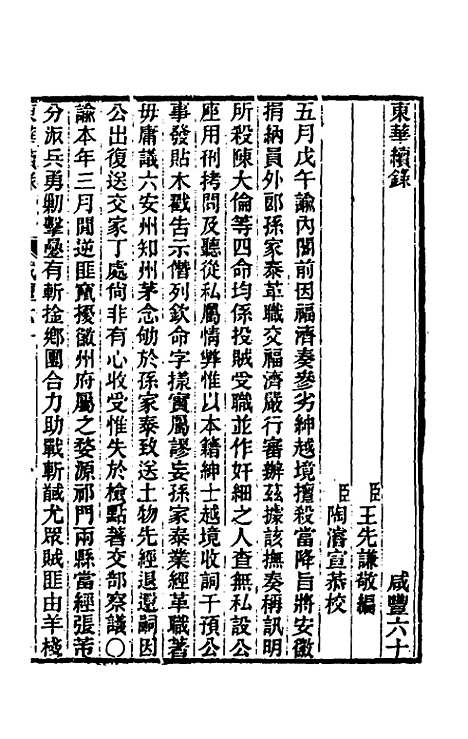 東華續錄　咸豐六十
臣王先謙敬編
臣陶濬宣恭校
五月戊午諭內閣前因福濟奏參劣紳越境擅殺當降旨將安徽
捐納員外郎孫家泰革職交福濟嚴行審辦茲據該撫奏稱訊明
所殺陳大倫等四命均係投賊受職並作奸細之人查無私設公
座用刑拷問及聽從私屬情弊惟以本籍紳士越境收詞干預公
事發貼木戳告示僭列欽命字樣實屬謬妄孫家泰業經革職著
毋庸議六安州知州茅念劬於孫家泰致送土物先經退還嗣因
公出復送交家丁處尙非有心收受惟失於檢點著交部察議〇
諭本年三月閒逆匪竄擾徽州府屬之婺源祁門兩縣當經張芾
分派兵勇勦擊疊有斬捡鄉團合力助戰斬馘尤眾賊匪由羊棧